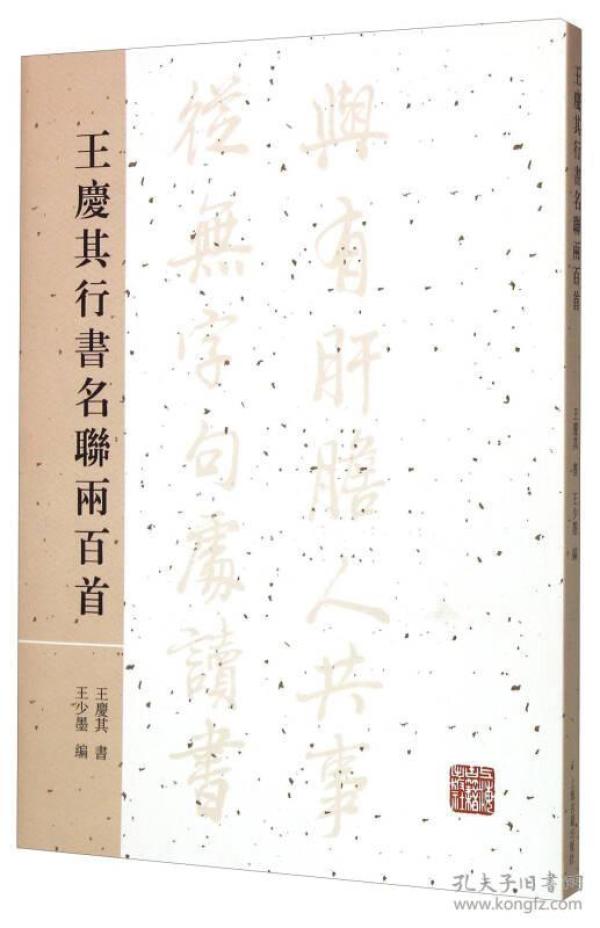 王慶其行書名聯兩百首
王慶其 書
王少墨 编
與有肝膽人共事
從無字句處讀書
上海古籍出版社
王慶其行書名聯兩百首
王慶其 書 王少墨 編
上海古籍出版社
孔夫子旧书网
www.kongfz.com